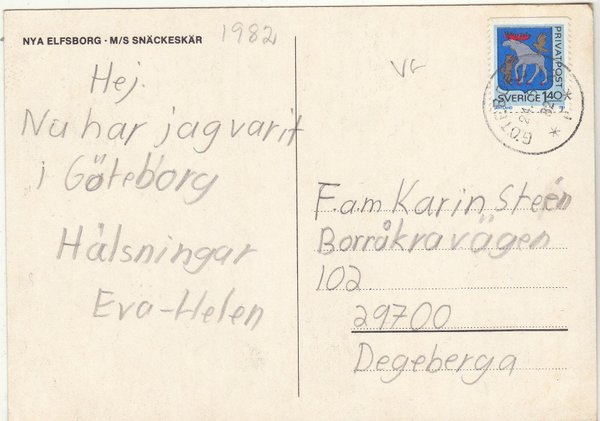 NYA ELFSBORG · M/S SNÄCKESKÄR
1982
Hej.
Nu har jag varit
i Göteborg
Hälsningar
Eva-Helen
VG
PRIVATPOST
SVERIGE 1.40
Fam Karin Steén
Borråkravägen
102
29700
Degeberga